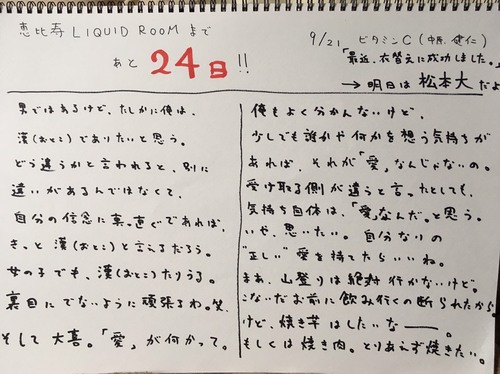 恵比寿 LIQUID ROOM まで
あと 24日!!
9/21 ビタミンC(中原 健仁)
「最近、衣替えに成功しました。」
→ 明日は 松本大 だよ
男ではあるけど、たしかに俺は、
漢(おとこ)でありたいと思う。
どう違うかと言われると、別に
違いがあるんではなくて、
自分の信念に真っ直ぐであれば、
きっと漢(おとこ)と言えるだろう。
女の子でも、漢(おとこ)たりうる。
裏目にでないように頑張るわ。笑
そして大喜。「愛」が何かって。
俺もよく分かんないけど、
少しでも誰かや何かを想う気持ちが
あれば、それが「愛」なんじゃないの。
受け取る側が違うと言ったとしても、
気持ち自体は、「愛」なんだ。と思う。
いや、思いたい。自分なりの
"正しい"愛を持てたらいいね。
まあ、山登りは絶対行かないけど。
こないだお前に飲み行くの断られたから。
けど、焼き芋はしたいなー。
もしくは焼き肉。とりあえず焼きたい。